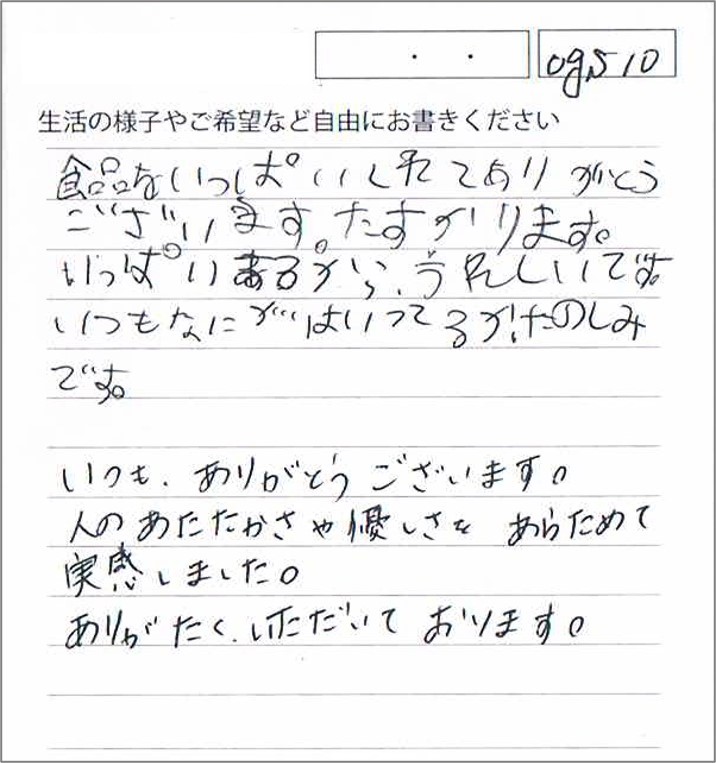 ・ ・ og510
生活の様子やご希望など自由にお書きください
食品をいっぱいくれてありがとう
ございます。たすかります。
いっぱいあるから、うれしいです。
いつもなにがはいってるか!たのしみ
です。
いつも、ありがとうございます。
人のあたたかさや優しさを あらためて
実感しました。
ありがたく、いただいて おります。